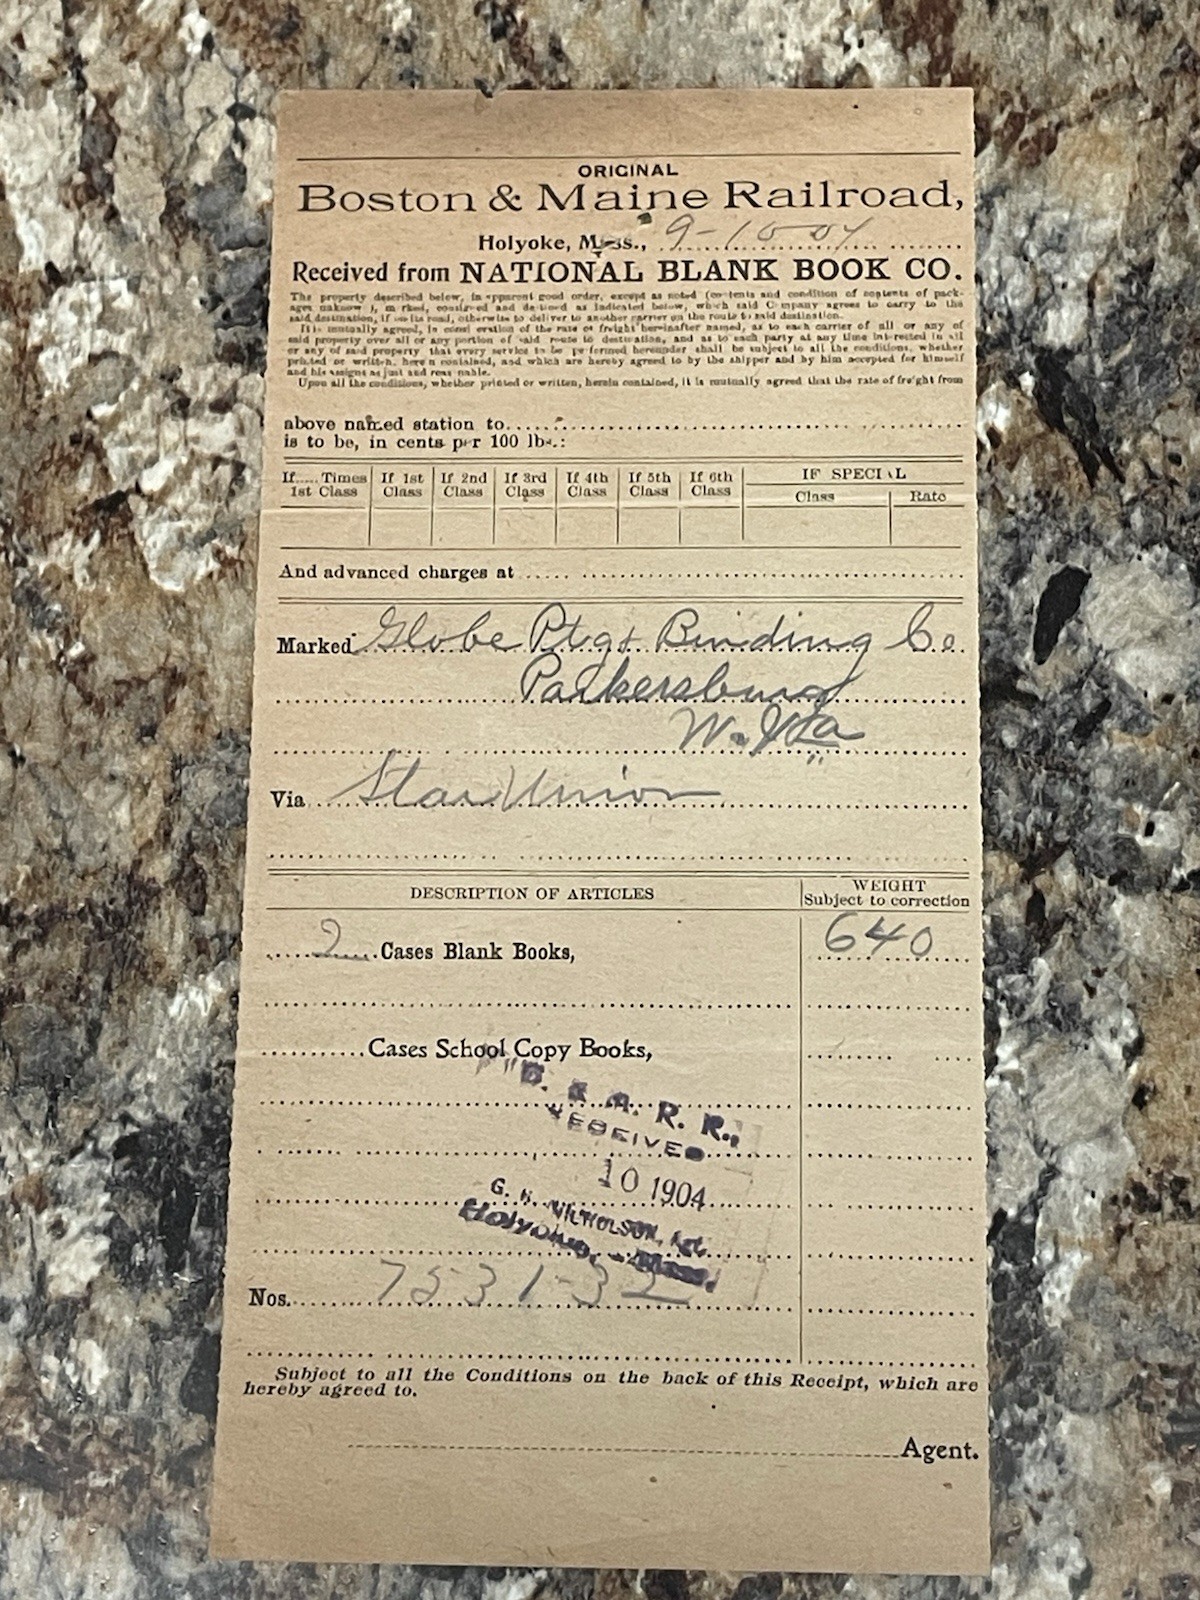 ORIGINAL
Boston & Maine Railroad,
Holyoke, Mass., 9-10 04
Received from NATIONAL BLANK BOOK CO.
The property described below, in apparent good order, except as noted (contents and condition of contents of pack-
ages unknown), marked, consigned and destined as indicated below, which said Company agrees to carry to the
said destination, if on its road, otherwise to deliver to another carrier on the route to said destination.
It is mutually agreed, in consideration of the rate of freight hereinafter named, as to each carrier of all or any of
said property over all or any portion of said route to destination, and as to each party at any time interested in all
or any of said property that every service to be performed hereunder shall be subject to all the conditions, whether
printed or written, herein contained, and which are hereby agreed to by the shipper and by him accepted for himself
and his assigns as just and reasonable.
Upon all the conditions, whether printed or written, herein contained, it is mutually agreed that the rate of freight from
above named station to
is to be, in cents per 100 lbs.:
If..... Times 1st Class If 1st Class If 2nd Class If 3rd Class If 4th Class If 5th Class If 6th Class IF SPECIAL
Class Rate
And advanced charges at
Marked Globe Ptg & Binding Co.
Parkersburg
W. Va
Via Star Union
DESCRIPTION OF ARTICLES WEIGHT
Subject to correction
2 Cases Blank Books, 640
Cases School Copy Books,
B. & M. R. R.,
RECEIVED
10 1904
G. H. NICHOLSON, Agt.
Holyoke, - Mass.
Nos. 7531-32
Subject to all the Conditions on the back of this Receipt, which are
hereby agreed to.
Agent.